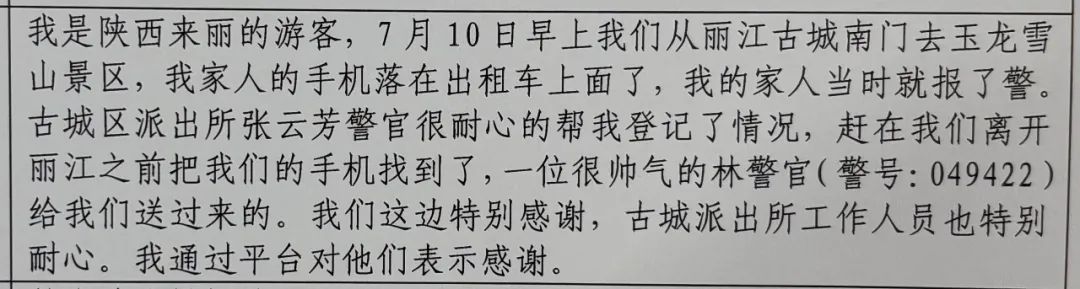 我是陕西来丽的游客，7月10日早上我们从丽江古城南门去玉龙雪
山景区，我家人的手机落在出租车上面了，我的家人当时就报了警。
古城区派出所张云芳警官很耐心的帮我登记了情况，赶在我们离开
丽江之前把我们的手机找到了，一位很帅气的林警官(警号:049422)
给我们送过来的。我们这边特别感谢，古城派出所工作人员也特别
耐心。我通过平台对他们表示感谢。